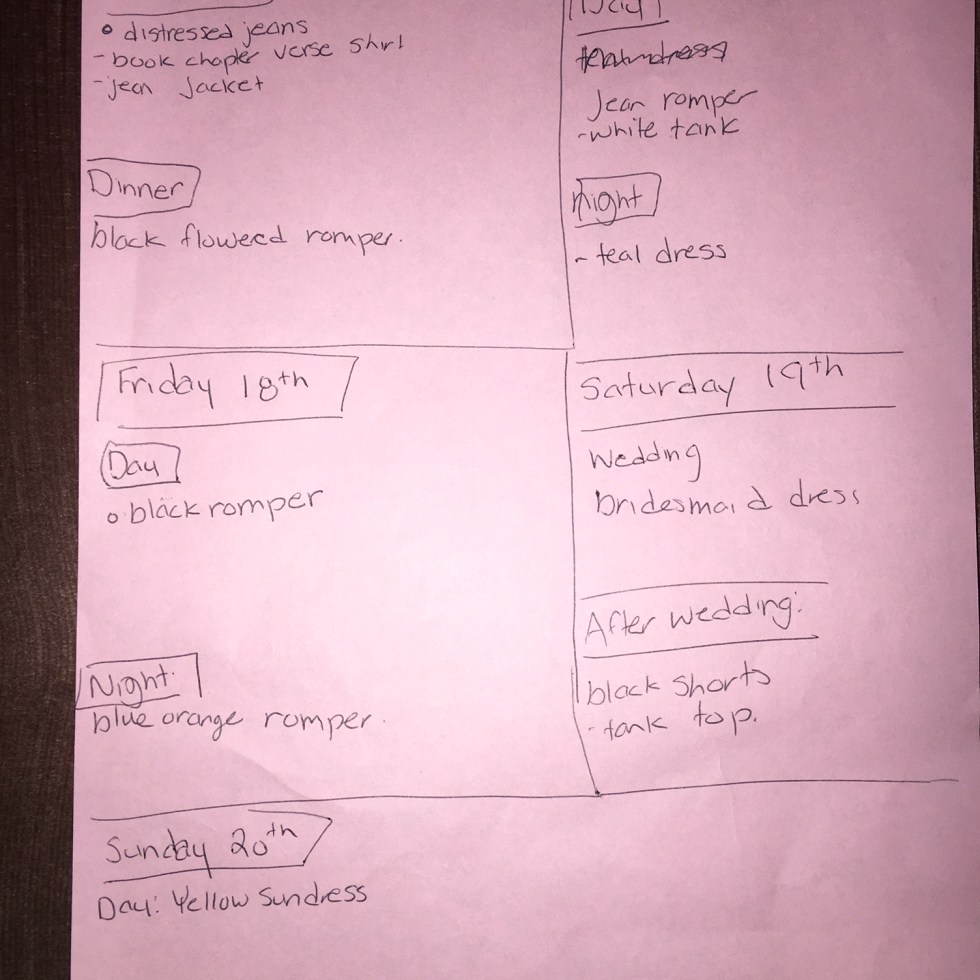 distressed jeans
- book chapter verse shirt
- jean jacket
Dinner
black flowered romper.
Day
teal dress
Jean romper
- white tank
Night
- teal dress
Friday 18th
Day
black romper
Night:
blue orange romper.
Saturday 19th
Wedding
bridesmaid dress
After wedding:
black shorts
- tank top.
Sunday 20th
Day: Yellow Sundress